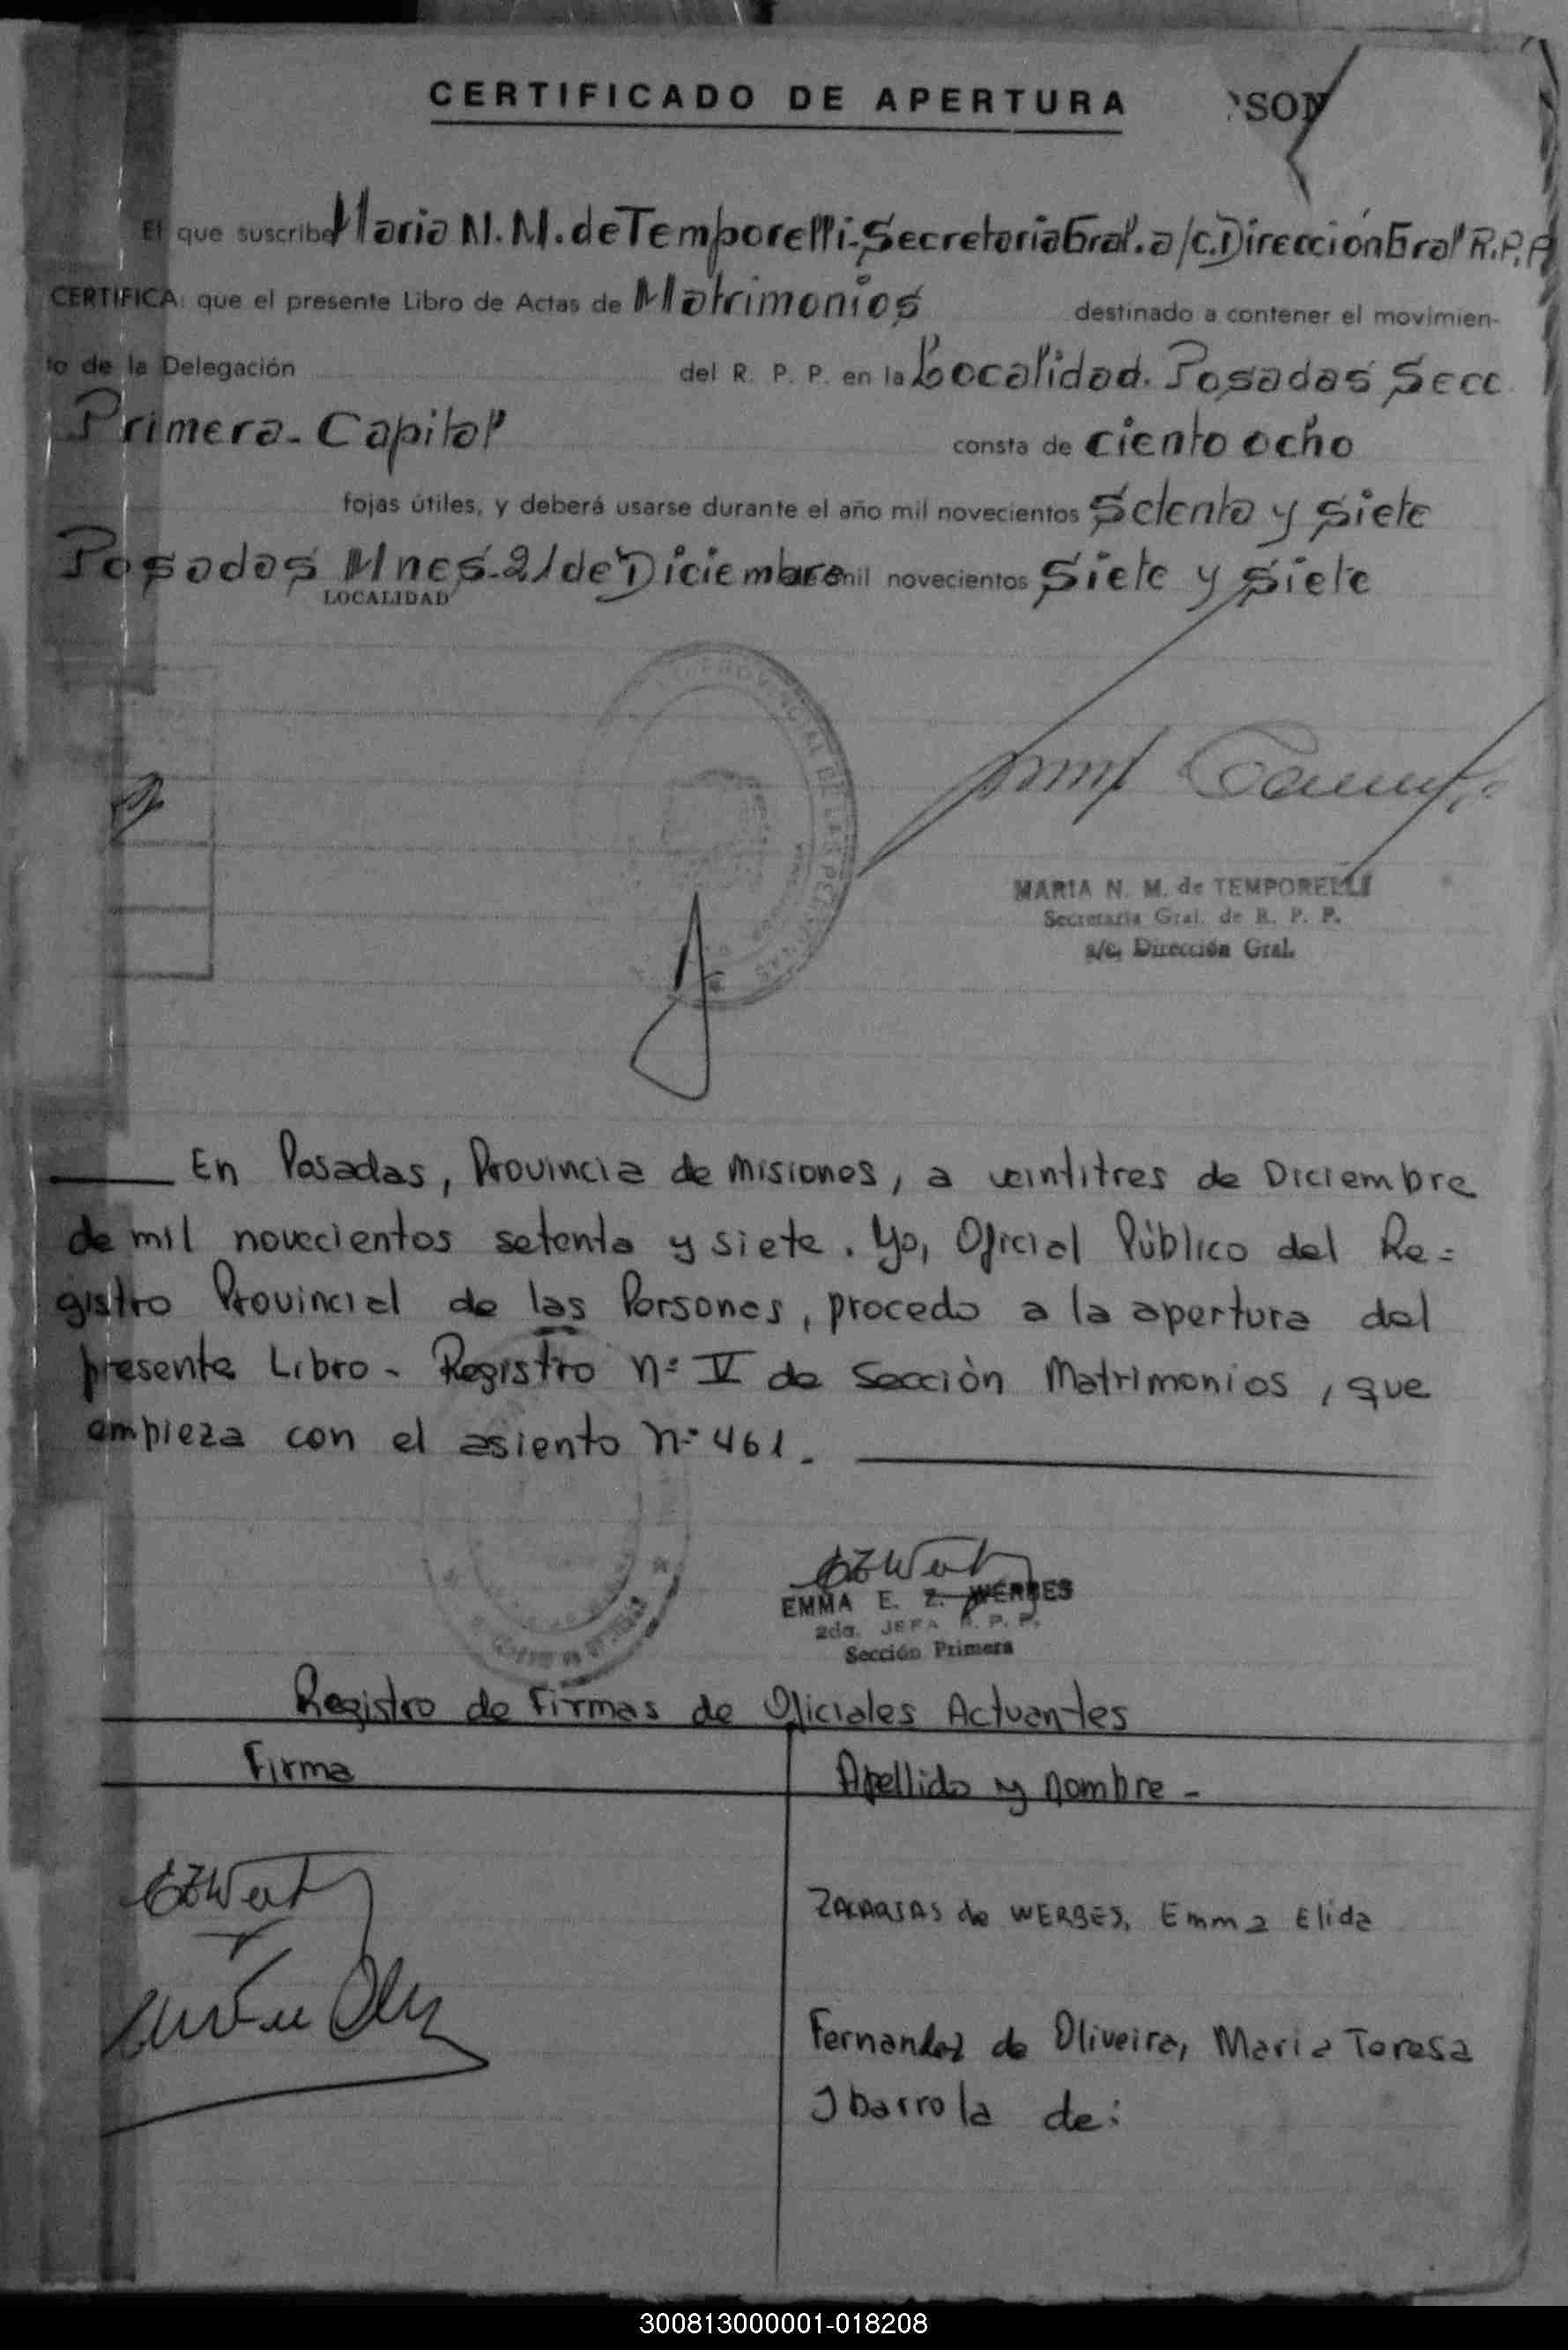 CERTIFICADO DE APERTURA
SON
El que suscribe Maria N. M. de Temporelli - Secretaria Gral. a/c. Dirección Gral R.P.P
CERTIFICA: que el presente Libro de Actas de Matrimonios destinado a contener el movimien-
to de la Delegación del R. P. P. en la Localidad. Posadas Secc.
Primera - Capital consta de ciento ocho
fojas útiles, y deberá usarse durante el año mil novecientos Setenta y siete
Posadas Mnes. 21 de Diciembre mil novecientos Siete y siete
LOCALIDAD
PROVINCIAL DE LAS PERSONAS
MARIA N. M. de TEMPORELLI
Secretaria Gral. de R. P. P.
a/c. Dirección Gral.
En Posadas, Provincia de Misiones, a veintitres de Diciembre
de mil novecientos setenta y siete. Yo, Oficial Público del Re=
gistro Provincial de las Personas, procedo a la apertura del
presente Libro - Registro nº V de Sección Matrimonios, que
empieza con el asiento nº 461.
EMMA E. Z. WERBES
2da. JEFA R. P. P.
Sección Primera
Registro de Firmas de Oficiales Actuantes
Firma Apellido y nombre -
ZACARIAS de WERBES, Emma Elida
Fernandez de Oliveira, Maria Teresa
Ibarrola de:
300813000001-018208